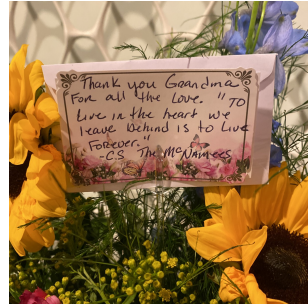 Thank you Grandma
For all the Love. "To
Live in the heart we
leave behind is to Live
Forever."
-C.S The McNamees